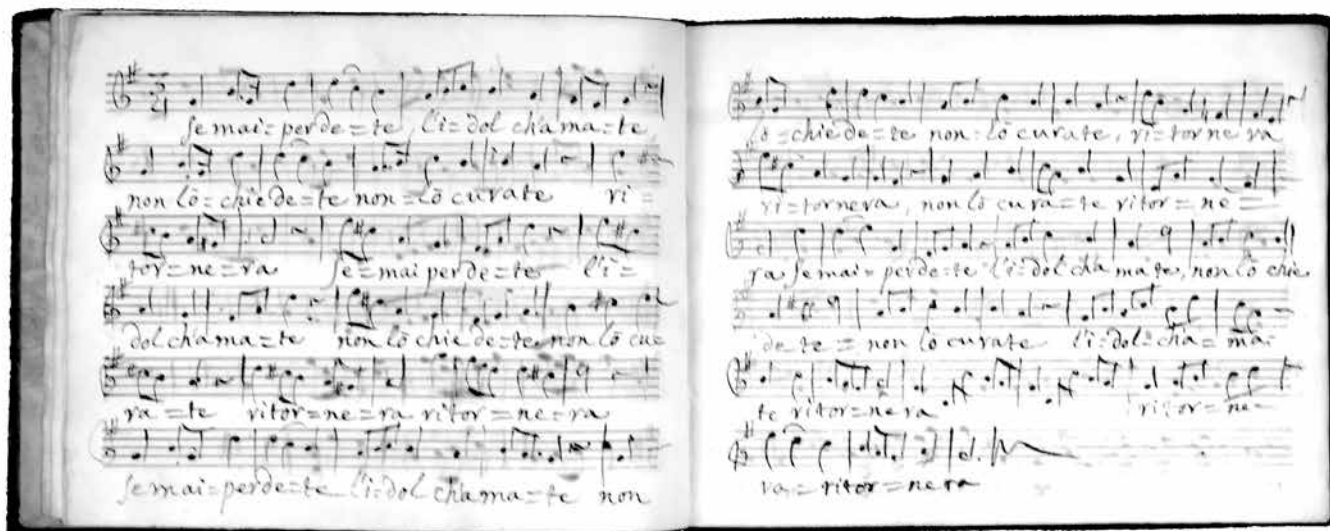 se mai=perde=te l'i=dol ch'ama=te
non lō=chie de=te non=lō curate ri=
tor=ne=ra se=mai perde=te l'i=
dol ch'ama=te non lō chie de=te non lō cu=
ra=te ritor=ne=ra ritor=ne=ra
se mai=perde=te l'i=dol ch'ama=te non
lo=chie de=te non=lō curate, ri=torne ra
ri=tornera, non lō cura=te ritor=ne=
ra se mai=perde=te l'i=dol cha mate, non lō chie
de te=non lō curate l'i=dol=cha=ma=
te ritor=nera ritor=ne=
ra=ritor=nera